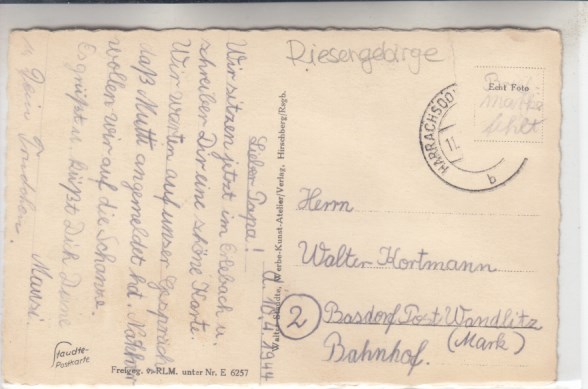 Riesengebirge
Echt Foto
Brief
marke
fehlt
HARRACHSDO
11.
b
d. 10.4.1944
Lieber Papa!
Wir sitzen jetzt im Erlebach u.
schreiben Dir eine schöne Karte.
Wir warten auf unser Gespräch
daß Mutti angemeldet hat. Nachher
wollen wir auf die Schanze.
Es grüßt u. küßt Dich Deine
Mausi.
Dein Trudchen.
Walter Staudte, Werbe-Kunst-Atelier/Verlag, Hirschberg/Rsgb.
Herrn
Walter Hortmann
2
Basdorf Post Wandlitz
(Mark)
Bahnhof.
Staudte-
Postkarte
Freigeg. d. RLM. unter Nr. E 6257